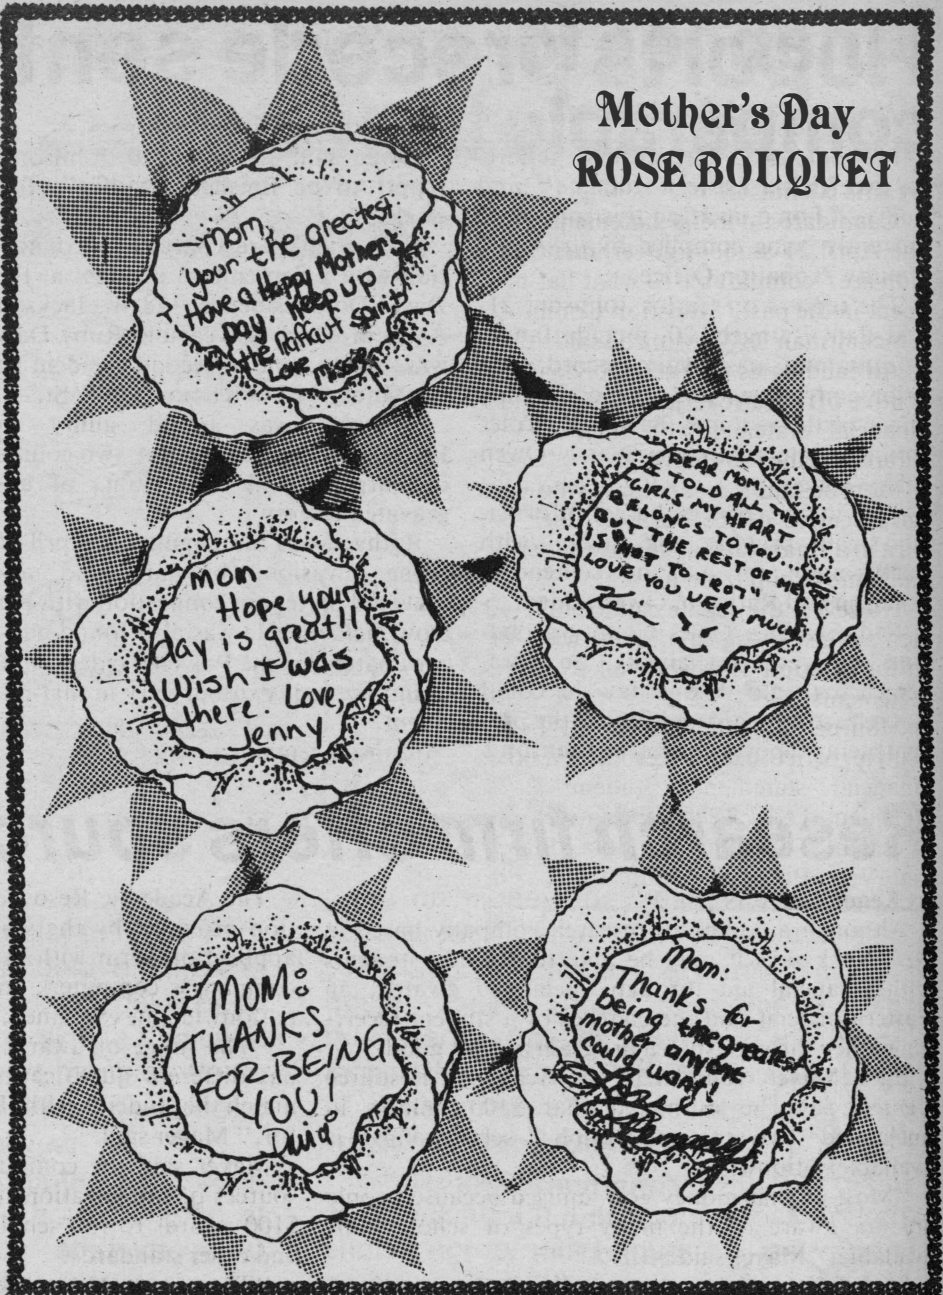 Mother's Day
ROSE BOUQUET
—Mom,
your the greatest
Have a Happy Mother's
Day! Keep up
the Raffaut spirit!
Love Missy
DEAR MOM,
I TOLD ALL THE
"GIRLS MY HEART
BELONGS TO YOU...
BUT THE REST OF ME
IS HOT TO TROT"
LOVE YOU VERY MUCH
Ken
Mom-
Hope your
day is great!!
Wish I was
there. Love,
Jenny
MOM:
THANKS
FOR BEING
YOU!
Mom:
Thanks for
being the greatest
mother anyone
could want!
Love